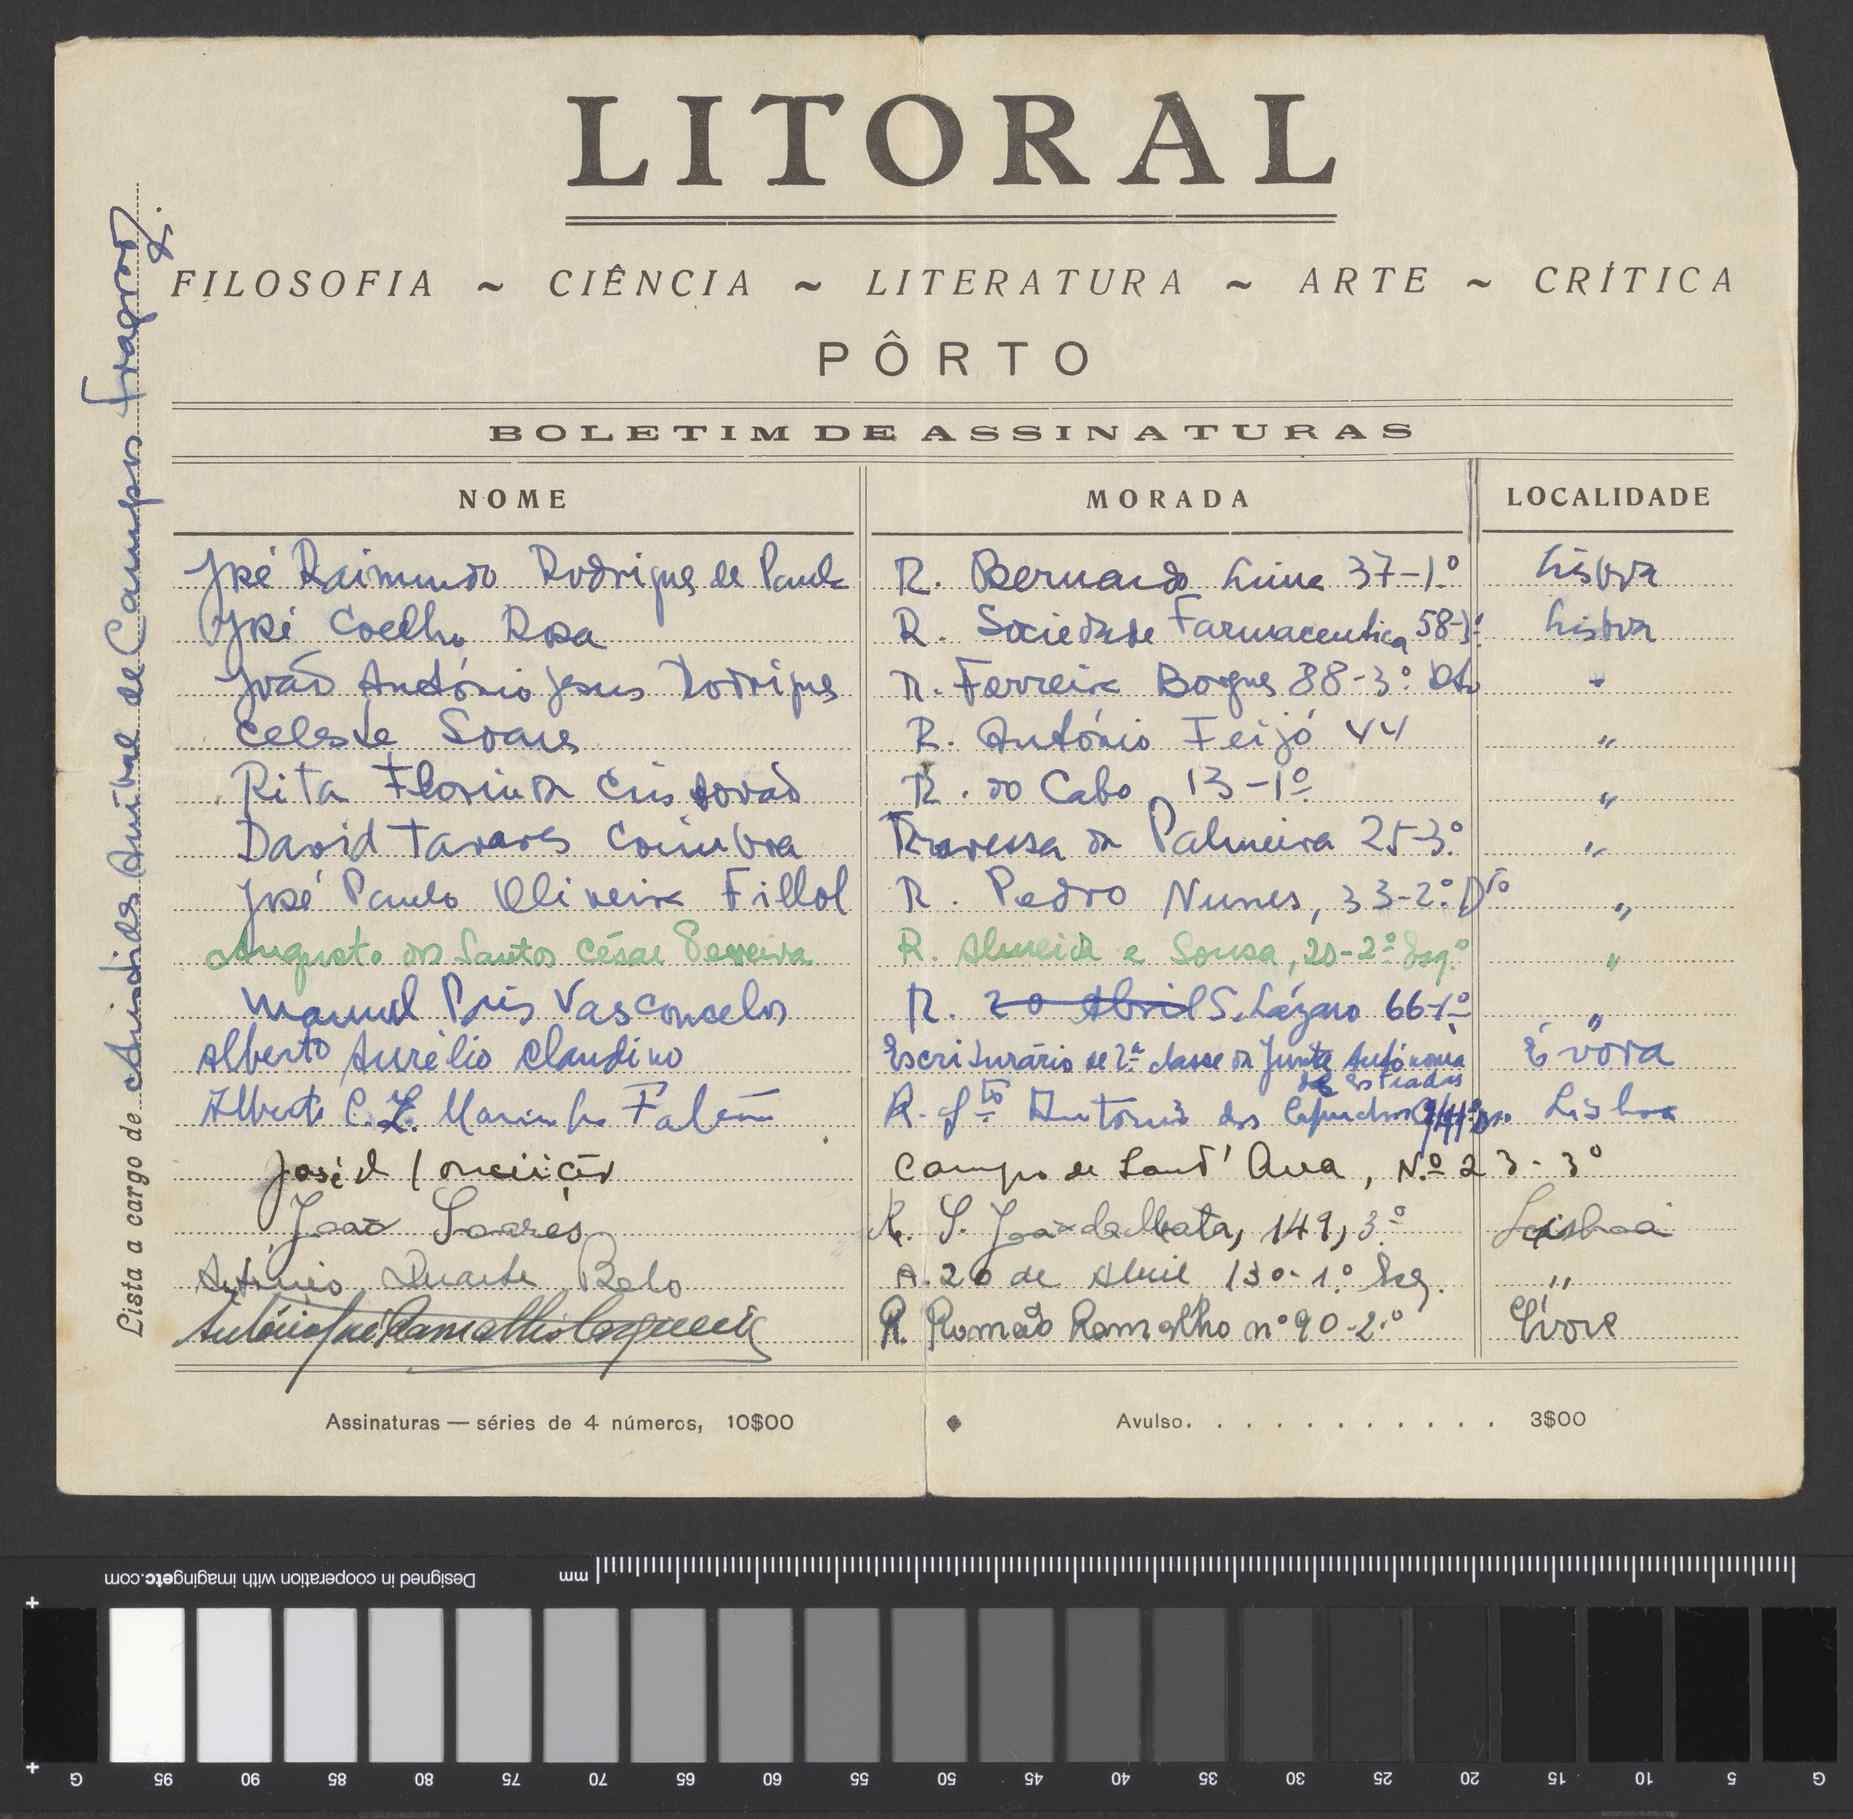 LITORAL
FILOSOFIA ~ CIÊNCIA ~ LITERATURA ~ ARTE ~ CRÍTICA
PÔRTO
BOLETIM DE ASSINATURAS
NOME MORADA LOCALIDADE
José Raimundo Rodrigues de Paula R. Bernardo Lima 37-1.º Lisboa
José Coelho Rosa R. Sociedade Farmaceutica 58- Lisboa
João António Jesus Rodrigues R. Ferreira Borges 88-3.º Dto "
Celeste Soares R. António Feijó 44 "
Rita Florinda Cristovão R. do Cabo 13-1º "
David Tavares Coimbra Travessa da Palmeira 25-3.º "
José Paulo Oliveira Fillol R. Pedro Nunes, 33-2.º Dto "
Augusto dos Santos César Ferreira R. Almeida e Sousa, 20-2º Esq.º "
Manuel Pais Vasconcelos R. 20 Abril S. Lázaro 66-1º "
Alberto Aurélio Claudino Escriturário de 2ª classe da Junta Autónoma Évora
de Estradas
Alberto C. L. Marinho Falcão R. Sto António dos Capuchos Lisboa
José d Conceição Campo de Sant'Ana, N.º 23-3º
João Soares R. S. João da Mata, 149, 3.º Lisboa
António Duarte Belo A. 20 de Abril 130-1.º Esq. "
António José Ramalho R. Romão Ramalho nº 90-2.º Évora
Assinaturas — séries de 4 números, 10$00 ◆ Avulso. . . . . . . . . . . . 3$00
Lista a cargo de Aristides Aníbal de Campos Fragoso
Designed in cooperation with imagingetc.com mm
G 95 90 85 80 75 70 65 60 55 50 45 40 35 30 25 20 15 10 5 G